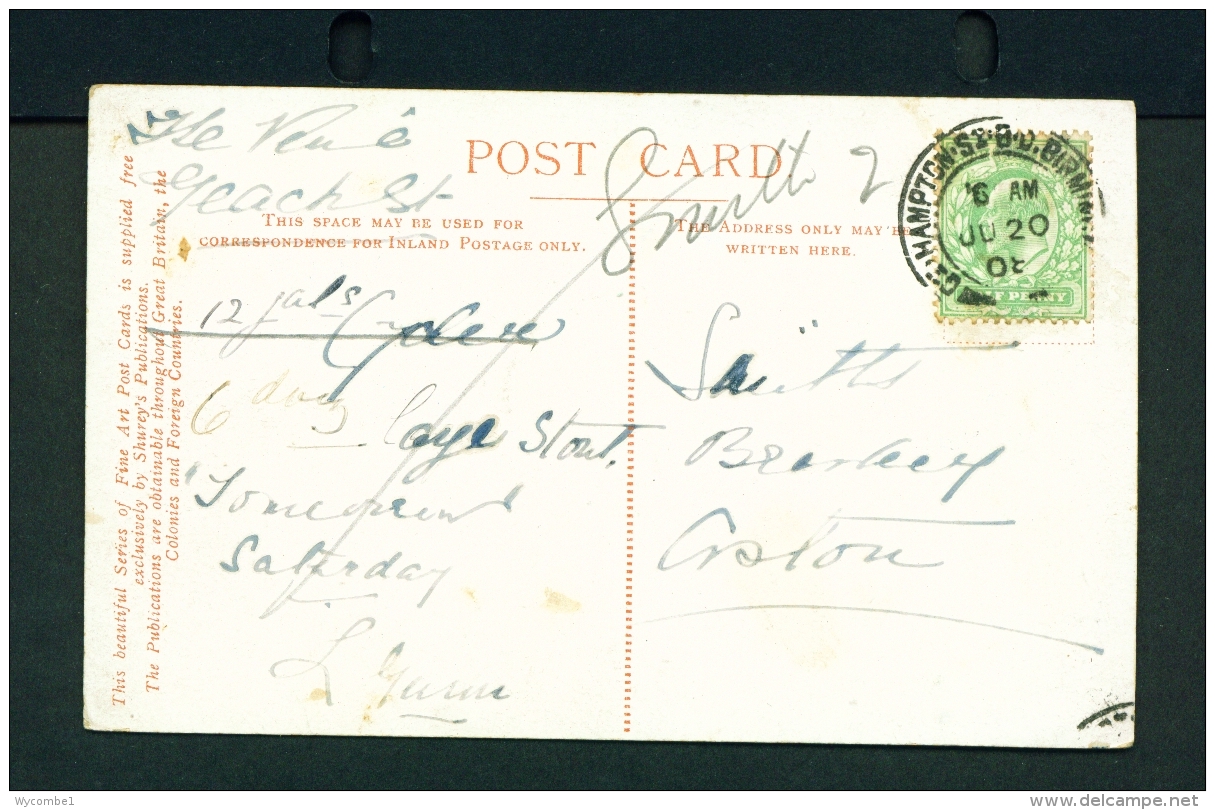 POST CARD.
THIS SPACE MAY BE USED FOR
CORRESPONDENCE FOR INLAND POSTAGE ONLY.
THE ADDRESS ONLY MAY BE
WRITTEN HERE.
This beautiful Series of Fine Art Post Cards is supplied free
exclusively by Shurey's Publications.
The Publications are obtainable throughout Great Britain, the
Colonies and Foreign Countries.
The
Geach St
12 gals
6 doz Stout.
Saturday
L
2
Smiths
Aston
HAMPTON·ST B.O. BIRMINGM
AM
20
PENNY
Wycombe1
delcampe.net